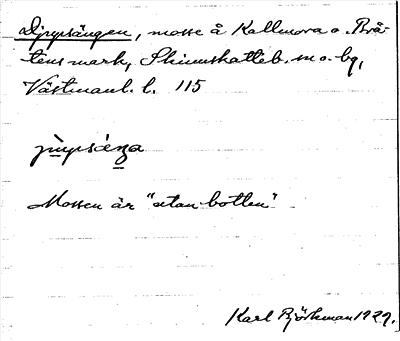 Djupsängen, mosse å Kallmora o. Brå-
tens mark, Skinnskatteb. sn o. bg,
Västmanl. l. 115
Mossen är "utan botten"
Karl Björkman 1929.